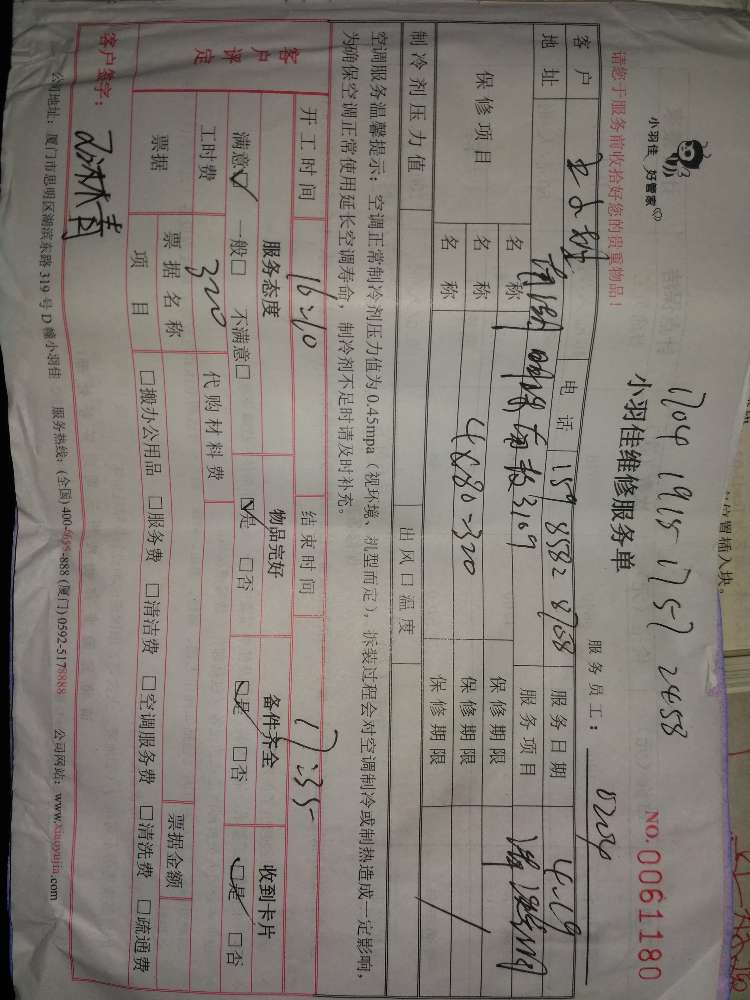 小羽佳 好管家
1704 1915 1757 2458
小羽佳维修服务单
NO.0061180
请您于服务前收拾好您的贵重物品！
服务员工：0204
客户 电话 159 8582 8708 服务日期 4.19
地址 3109 服务项目 清洗
保修项目 名称 保修期限
名称 4×80=320 保修期限
名称 保修期限
制冷剂压力值 出风口温度
空调服务温馨提示：空调正常制冷剂压力值为 0.45mpa（视环境、机型而定），拆装过程会对空调制冷或制热造成一定影响，
为确保空调正常使用延长空调寿命，制冷剂不足时请及时补充。
开工时间 16:10 结束时间 17:35
客户评定 服务态度 物品完好 备件齐全 收到卡片
满意☑ 一般□ 不满意□ ☑是 □否 ☑是 □否 ☑是 □否
工时费 320 代购材料费
票据 票据名称 票据金额
项目 □搬办公用品 □服务费 □清洁费 □空调服务费 □清洗费 □疏通费
客户签字：
公司地址：厦门市思明区湖滨东路 319 号 D 幢小羽佳 服务热线：(全国) 400-888 (厦门) 0592-5178888 公司网站：www.xiaoyujia.com
位置插入块。